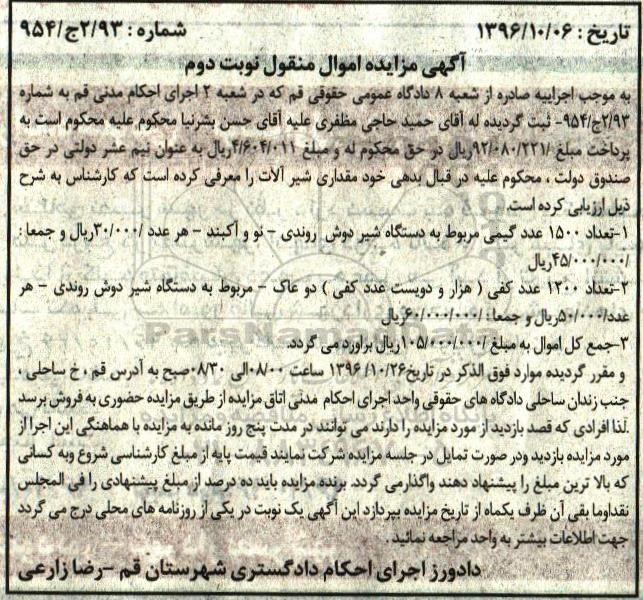 تاریخ : ۱۳۹۶/۱۰/۰۶ شماره : ۲/۹۳ج/۹۵۴
آگهی مزایده اموال منقول نوبت دوم
به موجب اجراییه صادره از شعبه ۸ دادگاه عمومی حقوقی قم که در شعبه ۲ اجرای احکام مدنی قم به شماره
۲/۹۳ج/۹۵۴- ثبت گردیده له آقای حمید حاجی مظفری علیه آقای حسن بشرنیا محکوم علیه محکوم است به
پرداخت مبلغ /۹۲/۰۸۰/۲۲۱ریال در حق محکوم له و مبلغ ۴/۶۰۴/۰۱۱ریال به عنوان نیم عشر دولتی در حق
صندوق دولت ، محکوم علیه در قبال بدهی خود مقداری شیر آلات را معرفی کرده است که کارشناس به شرح
ذیل ارزیابی کرده است.
۱-تعداد ۱۵۰۰ عدد گیمی مربوط به دستگاه شیر دوش روندی - نو و آکبند - هر عدد /۳۰/۰۰۰ریال و جمعا :
/۴۵/۰۰۰/۰۰۰ریال
۲-تعداد ۱۲۰۰ عدد کفی ( هزار و دویست عدد کفی ) دو عاک - مربوط به دستگاه شیر دوش روندی - هر
عدد/۵۰/۰۰۰ریال و جمعا: /۶۰/۰۰۰/۰۰۰ریال
۳-جمع کل اموال به مبلغ /۱۰۵/۰۰۰/۰۰۰ریال براورد می گردد.
و مقرر گردیده موارد فوق الذکر در تاریخ۱۳۹۶/۱۰/۲۶ ساعت ۰۸/۰۰الی ۰۸/۳۰صبح به آدرس قم ، خ ساحلی ،
جنب زندان ساحلی دادگاه های حقوقی واحد اجرای احکام مدنی اتاق مزایده از طریق مزایده حضوری به فروش برسد
.لذا افرادی که قصد بازدید از مورد مزایده را دارند می توانند در مدت پنج روز مانده به مزایده با هماهنگی این اجرا از
مورد مزایده بازدید ودر صورت تمایل در جلسه مزایده شرکت نمایند قیمت پایه از مبلغ کارشناسی شروع وبه کسانی
که بالا ترین مبلغ را پیشنهاد دهند واگذارمی گردد. برنده مزایده باید ده درصد از مبلغ پیشنهادی را فی المجلس
نقداوما بقی آن ظرف یکماه از تاریخ مزایده بپردازد این آگهی یک نوبت در یکی از روزنامه های محلی درج می گردد
جهت اطلاعات بیشتر به واحد مراجعه نمائید .
دادورز اجرای احکام دادگستری شهرستان قم -رضا زارعی
ParsNamadData